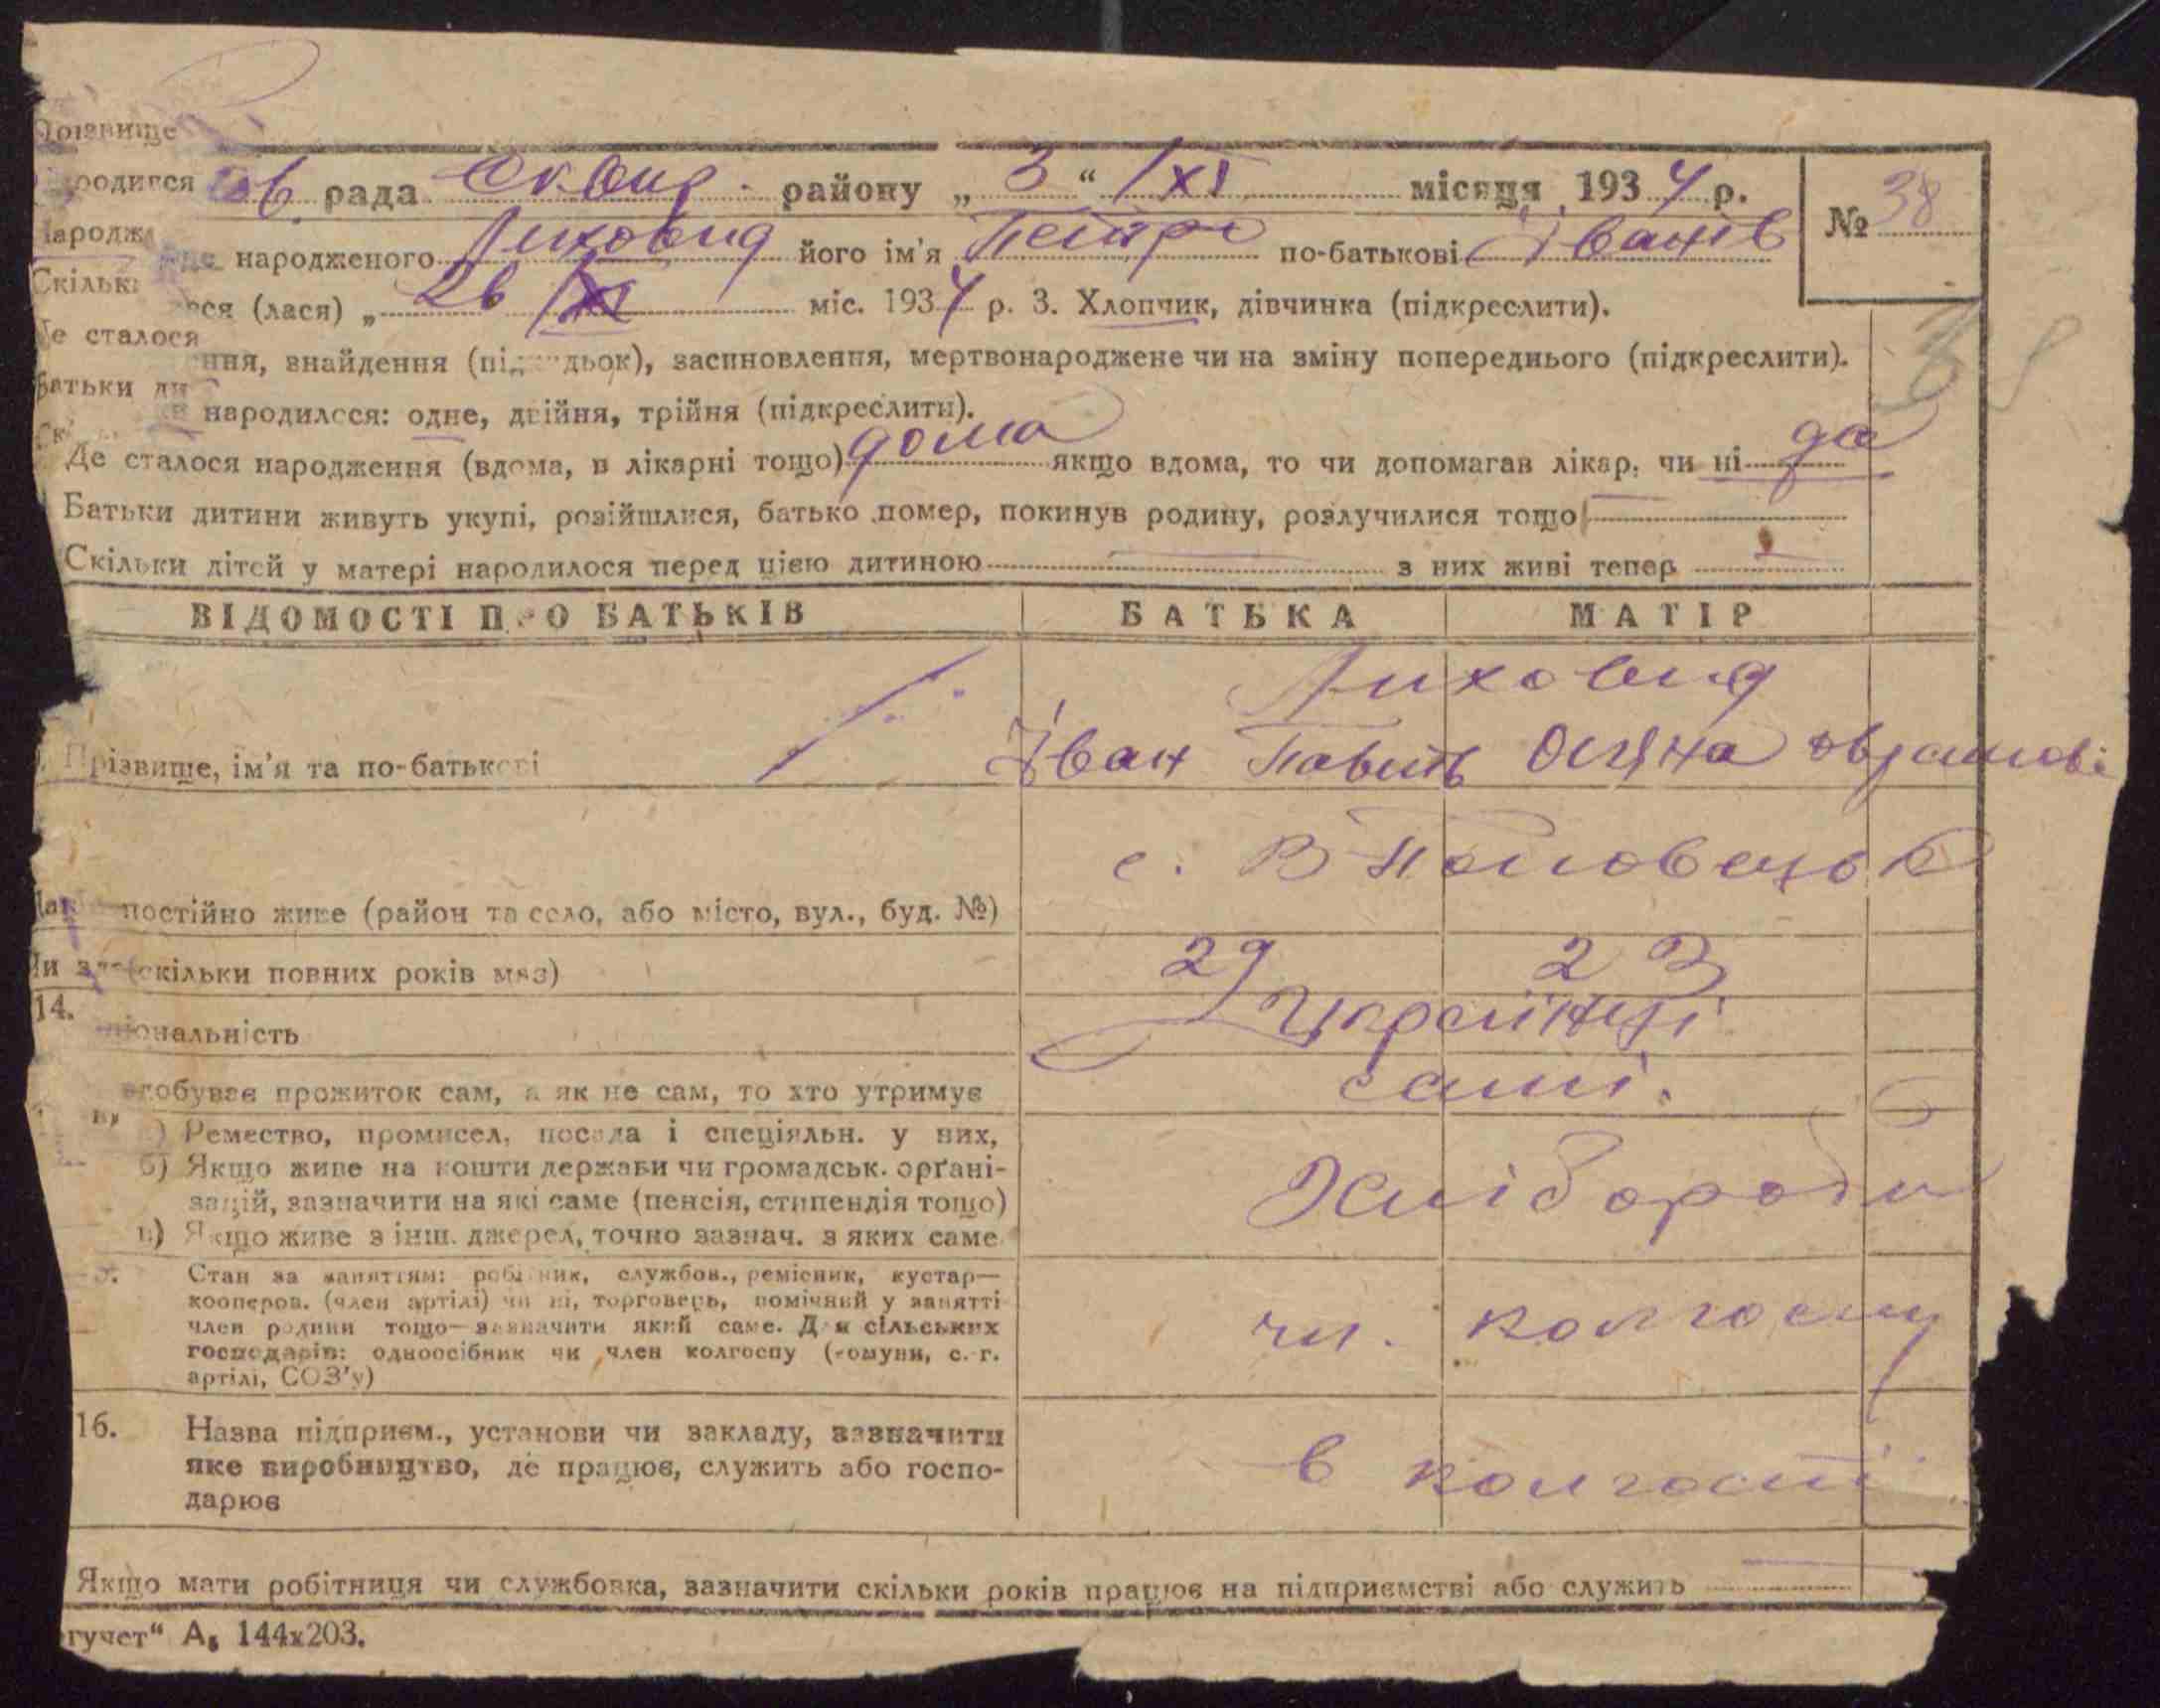 Прізвище
родился
ов. рада Сквир. району „ 3 “ /XI місяця 1934 р.
№ 38
Народж
народженого Лиховид його ім'я Петро по-батькові Іванів
Скільк
ся (лася) „ 26 /XI міс. 1934 р. 3. Хлопчик, дівчинка (підкреслити).
Де сталося
ння, знайдення (підкидьок), засиновлення, мертвонароджене чи на зміну попереднього (підкреслити).
38
Батьки ди
народилося: одне, двійня, трійня (підкреслити).
Де сталося народження (вдома, в лікарні тощо) дома якщо вдома, то чи допомагав лікар, чи ні да
Батьки дитини живуть укупі, розійшлися, батько помер, покинув родину, розлучилися тощо
Скільки дітей у матері народилося перед цією дитиною з них живі тепер
ВІДОМОСТІ ПРО БАТЬКІВ БАТЬКА МАТІР
Лиховид
Прізвище, ім'я та по-батькові Іван
с. В Половецьк
постійно живе (район та село, або місто, вул., буд. №)
(скільки повних років має) 29 23
14.
ціональність Українці
здобуває прожиток сам, а як не сам, то хто утримує самі.
а) Ремество, промисел, посада і спеціяльн. у них,
б) Якщо живе на кошти держави чи громадськ. орґані-
зацій, зазначити на які саме (пенсія, стипендія тощо) Хлібороби
в) Якщо живе з інш. джерел, точно зазнач. з яких саме
Стан за заняттям: робітник, службов., ремісник, кустар—
кооперов. (член артілі) чи ні, торговець, помічний у занятті
член родини тощо—зазначити який саме. Для сільських чл. колгоспу
господарів: одноосібник чи член колгоспу (комуни, с.-г.
артілі, СОЗ'у)
16. Назва підприєм., установи чи закладу, зазначити
яке виробництво, де працює, служить або госпо- в колгоспі
дарює
Якщо мати робітниця чи службовка, зазначити скільки років працює на підприємстві або служить
гучет“ А₅ 144х203.